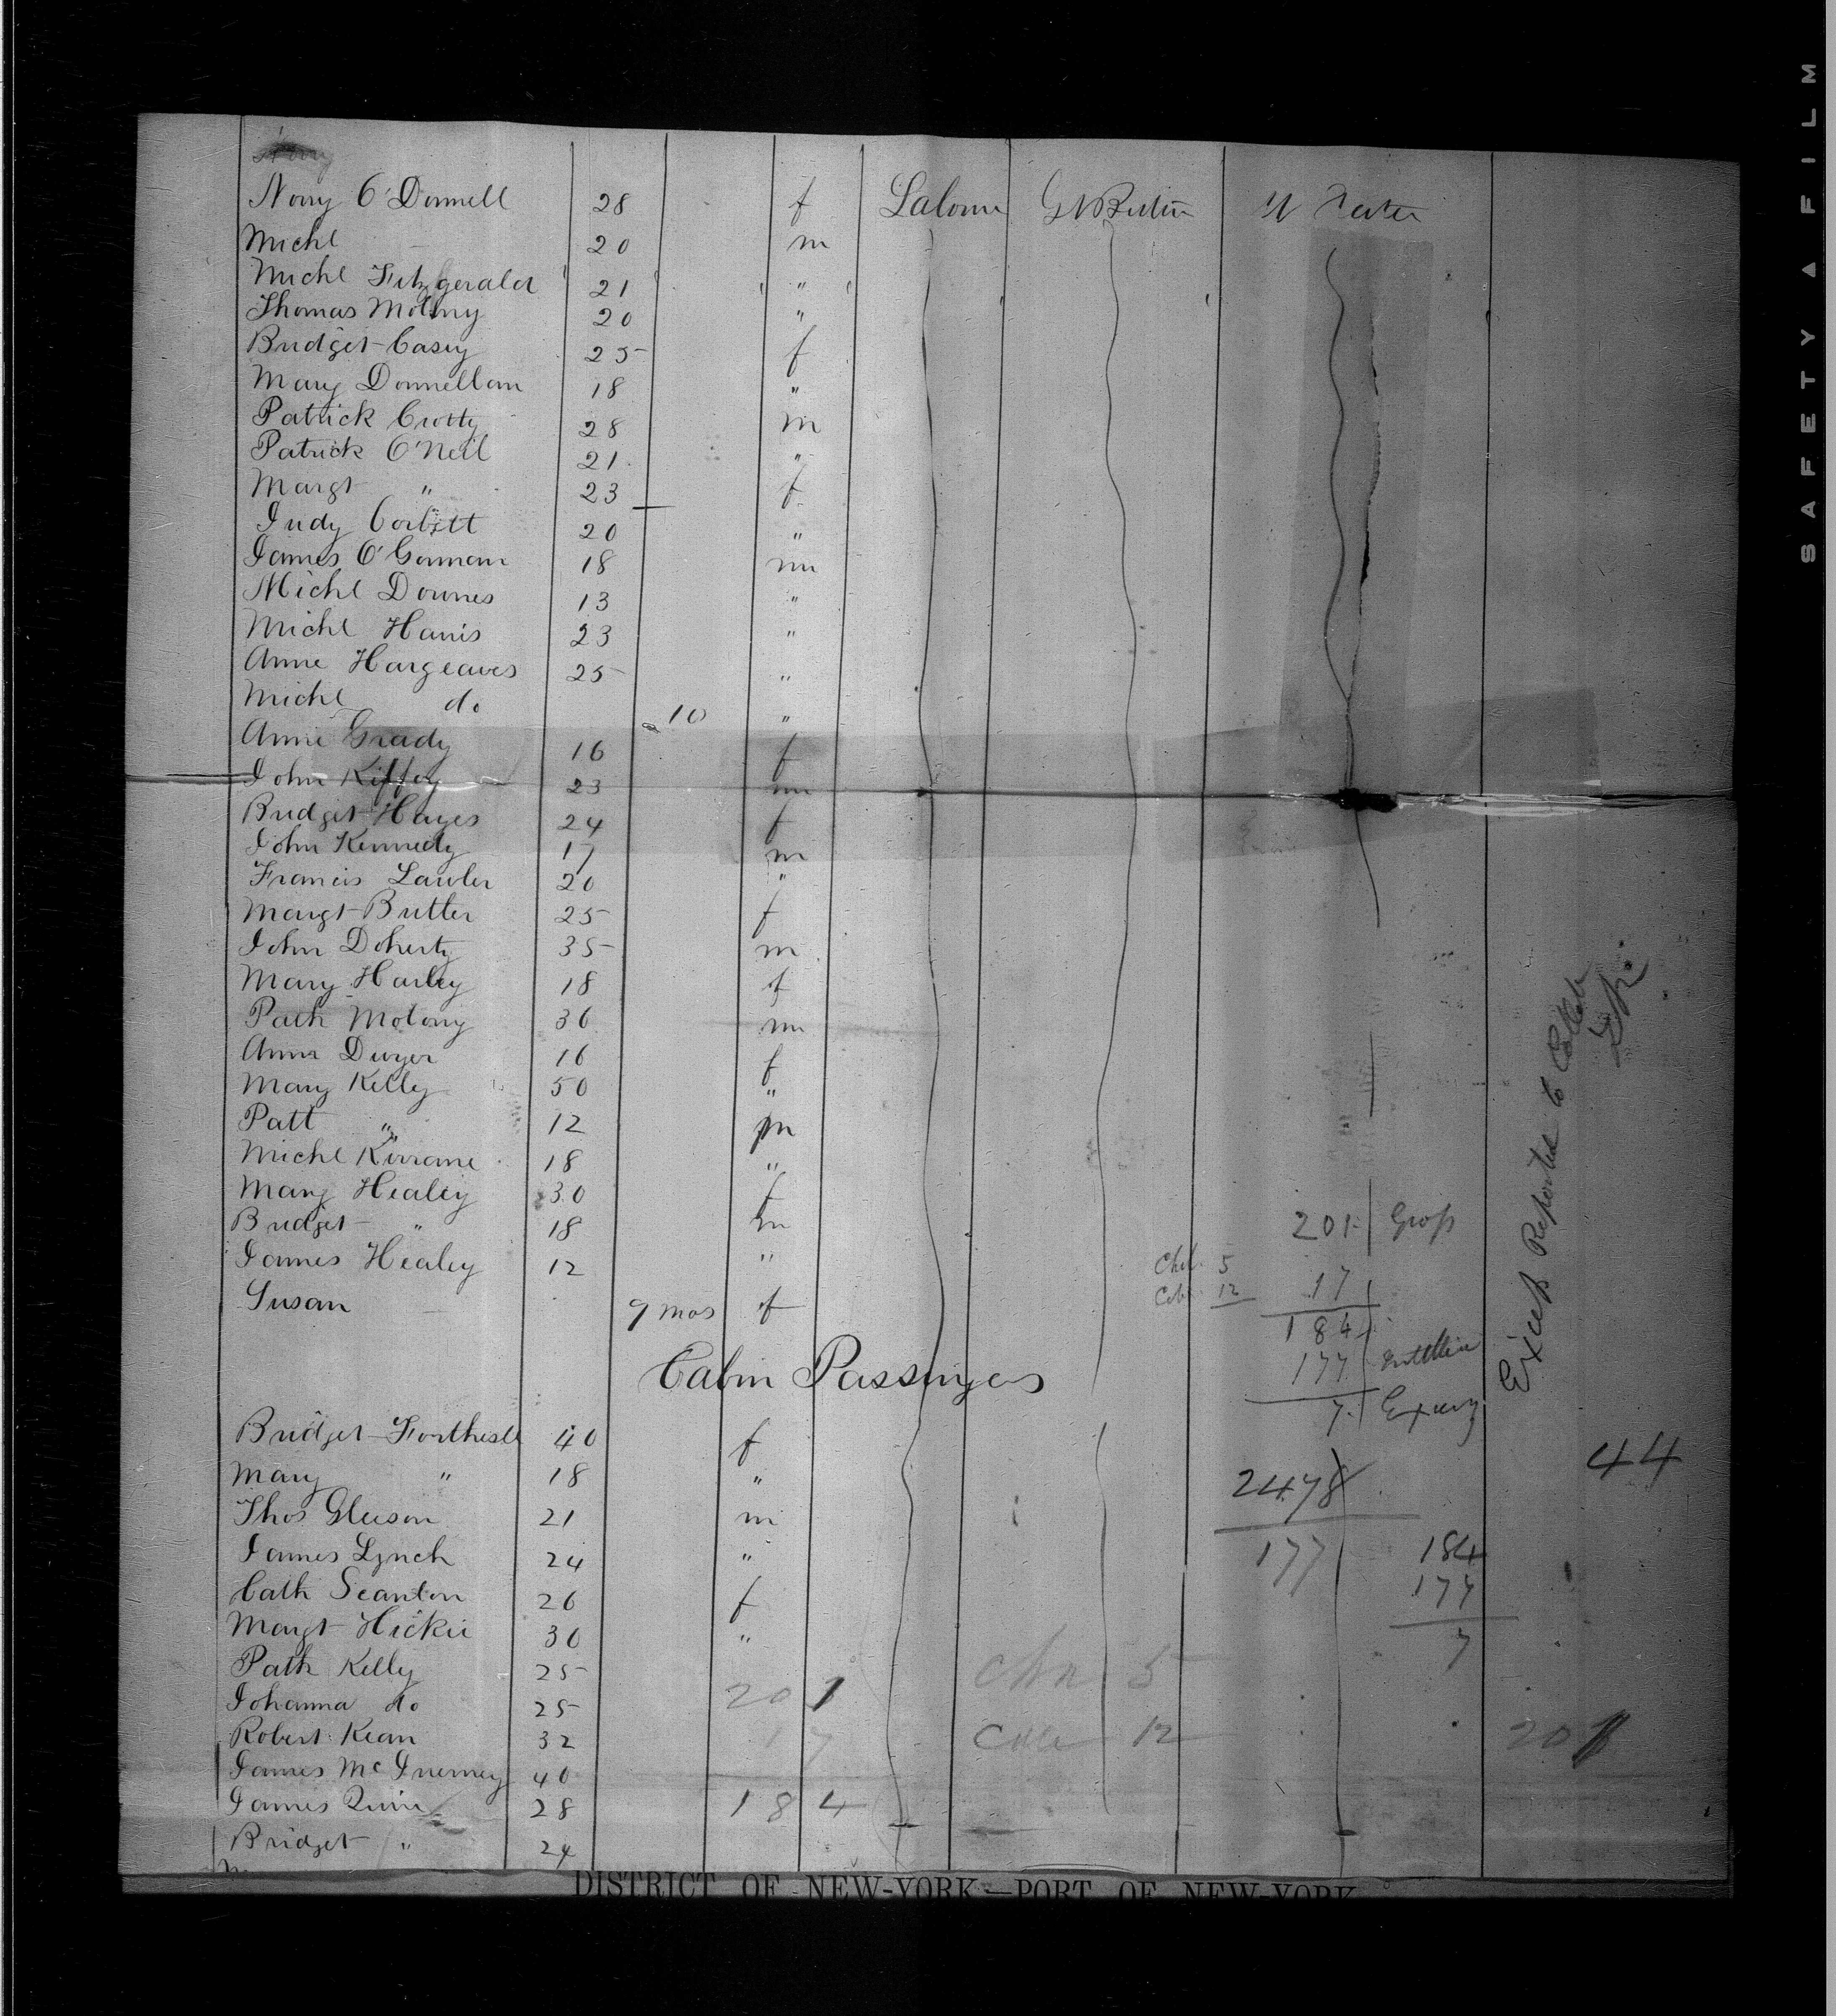 Nony O'Donnell 28 f Labour Gt Britn U States
Michl 20 m
Michl Fitzgerald 21 "
Thomas Molony 20 "
Bridget Casey 25 f
Mary Donnellan 18 "
Patrick Crotty 28 m
Patrick O'Neil 21 "
Margt " 23 f
Judy Corbett 20 "
James O'Gorman 18 m
Michl Downes 13 "
Michl Harris 23 "
Anne Hargeaves 25 "
Michl do 10 "
Anne Grady 16 f
John Kiffey 23 m
Bridget Hayes 24 f
John Kennedy 17 m
Francis Lawler 20 "
Margt Butler 25 f
John Doherty 35 m
Mary Harley 18 f
Patk Molony 36 m
Anne Dwyer 16 f
Mary Kelly 50 "
Patt " 12 m
Michl Kirrane 18 "
Mary Healey 30 f
Bridget " 18 m
James Healey 12 "
Susan 9 mos f
201 Gross
Chil. 5
Cab. 12
17
184
177
7
Excess Reported to Collr
Cabin Passengers
Bridget 40 f
Mary " 18 "
Thos Gleeson 21 m
James Lynch 24 "
Cath Scanlon 26 f
Margt Hickie 30 "
Patk Kelly 25
Johanna do 25
Robert Kean 32
James McInerney 40
James Quin 28
Bridget " 24
44
2478
177
184
177
7
201
17
184
Chn 5
Cab 12
201
DISTRICT OF NEW-YORK—PORT OF NEW-YORK
SAFETY A FILM